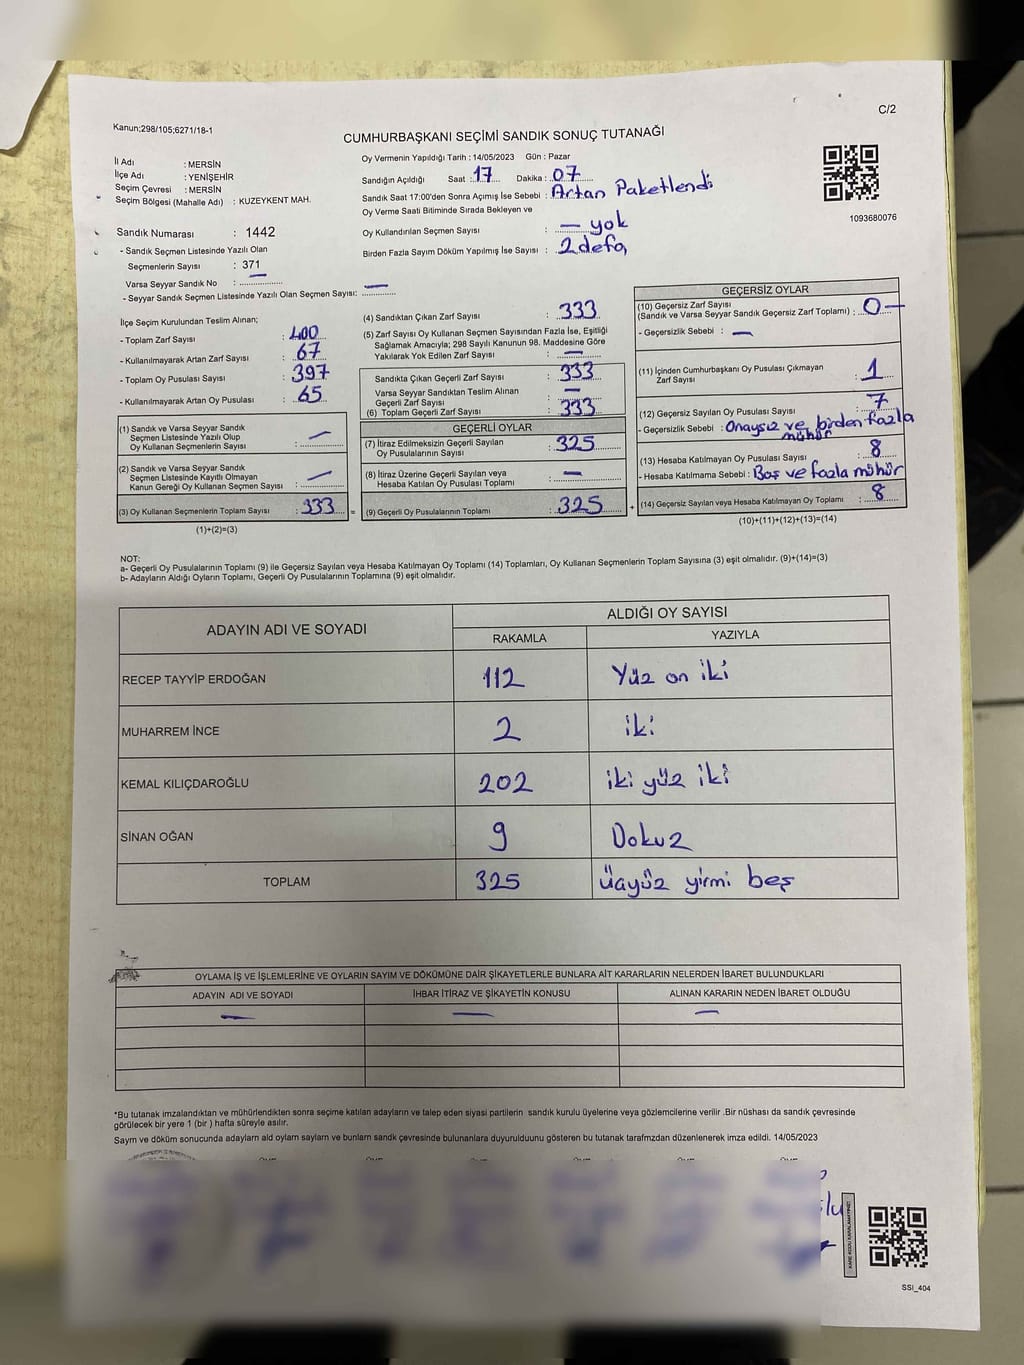 C/2
Kanun;298/105;6271/18-1
CUMHURBAŞKANI SEÇİMİ SANDIK SONUÇ TUTANAĞI
İl Adı : MERSİN
İlçe Adı : YENİŞEHİR
Seçim Çevresi : MERSİN
Seçim Bölgesi (Mahalle Adı) : KUZEYKENT MAH.
Sandık Numarası : 1442
- Sandık Seçmen Listesinde Yazılı Olan
Seçmenlerin Sayısı : 371
Varsa Seyyar Sandık No : —
- Seyyar Sandık Seçmen Listesinde Yazılı Olan Seçmen Sayısı: —
Oy Vermenin Yapıldığı Tarih : 14/05/2023 Gün : Pazar
Sandığın Açıldığı Saat : 17 Dakika : 07
Sandık Saat 17:00'den Sonra Açımış İse Sebebi : Artan Paketlendi
Oy Verme Saati Bitiminde Sırada Bekleyen ve
Oy Kullandırılan Seçmen Sayısı : — yok
Birden Fazla Sayım Döküm Yapılmış İse Sayısı : 2 defa
1093680076
İlçe Seçim Kurulundan Teslim Alınan;
- Toplam Zarf Sayısı : 400
- Kullanılmayarak Artan Zarf Sayısı : 67
- Toplam Oy Pusulası Sayısı : 397
- Kullanılmayarak Artan Oy Pusulası : 65
(1) Sandık ve Varsa Seyyar Sandık
Seçmen Listesinde Yazılı Olup
Oy Kullanan Seçmenlerin Sayısı : —
(2) Sandık ve Varsa Seyyar Sandık
Seçmen Listesinde Kayıtlı Olmayan
Kanun Gereği Oy Kullanan Seçmen Sayısı : —
(3) Oy Kullanan Seçmenlerin Toplam Sayısı : 333 =
(1)+(2)=(3)
(4) Sandıktan Çıkan Zarf Sayısı : 333
(5) Zarf Sayısı Oy Kullanan Seçmen Sayısından Fazla İse, Eşitliği
Sağlamak Amacıyla; 298 Sayılı Kanunun 98. Maddesine Göre
Yakılarak Yok Edilen Zarf Sayısı : —
Sandıkta Çıkan Geçerli Zarf Sayısı : 333
Varsa Seyyar Sandıktan Teslim Alınan
Geçerli Zarf Sayısı : —
(6) Toplam Geçerli Zarf Sayısı : 333
GEÇERLİ OYLAR
(7) İtiraz Edilmeksizin Geçerli Sayılan
Oy Pusulalarının Sayısı : 325
(8) İtiraz Üzerine Geçerli Sayılan veya
Hesaba Katılan Oy Pusulası Toplamı : —
(9) Geçerli Oy Pusulalarının Toplamı : 325 +
GEÇERSİZ OYLAR
(10) Geçersiz Zarf Sayısı
(Sandık ve Varsa Seyyar Sandık Geçersiz Zarf Toplamı) : 0 —
- Geçersizlik Sebebi : —
(11) İçinden Cumhurbaşkanı Oy Pusulası Çıkmayan
Zarf Sayısı : 1
(12) Geçersiz Sayılan Oy Pusulası Sayısı : 7
- Geçersizlik Sebebi : Onaysız ve birden fazla
mühür
(13) Hesaba Katılmayan Oy Pusulası Sayısı : 8
- Hesaba Katılmama Sebebi : Boş ve fazla mühür
(14) Geçersiz Sayılan veya Hesaba Katılmayan Oy Toplamı : 8
(10)+(11)+(12)+(13)=(14)
NOT:
a- Geçerli Oy Pusulalarının Toplamı (9) ile Geçersiz Sayılan veya Hesaba Katılmayan Oy Toplamı (14) Toplamları, Oy Kullanan Seçmenlerin Toplam Sayısına (3) eşit olmalıdır. (9)+(14)=(3)
b- Adayların Aldığı Oyların Toplamı, Geçerli Oy Pusulalarının Toplamına (9) eşit olmalıdır.
ADAYIN ADI VE SOYADI
ALDIĞI OY SAYISI
RAKAMLA YAZIYLA
RECEP TAYYİP ERDOĞAN 112 Yüz on iki
MUHARREM İNCE 2 iki
KEMAL KILIÇDAROĞLU 202 iki yüz iki
SİNAN OĞAN 9 Dokuz
TOPLAM 325 üçyüz yirmi beş
OYLAMA İŞ VE İŞLEMLERİNE VE OYLARIN SAYIM VE DÖKÜMÜNE DAİR ŞİKAYETLERLE BUNLARA AİT KARARLARIN NELERDEN İBARET BULUNDUKLARI
ADAYIN ADI VE SOYADI İHBAR İTİRAZ VE ŞİKAYETİN KONUSU ALINAN KARARIN NEDEN İBARET OLDUĞU
— — —
*Bu tutanak imzalandıktan ve mühürlendikten sonra seçime katılan adayların ve talep eden siyasi partilerin sandık kurulu üyelerine veya gözlemcilerine verilir .Bir nüshası da sandık çevresinde
görülecek bir yere 1 (bir ) hafta süreyle asılır.
Saym ve döküm sonucunda adaylarn ald oylarn saylarn ve bunlarn sandk çevresinde bulunanlara duyurulduunu gösteren bu tutanak tarafmzdan düzenlenerek imza edildi. 14/05/2023
KARE KODU KARALAMAYINIZ!
SSI_404